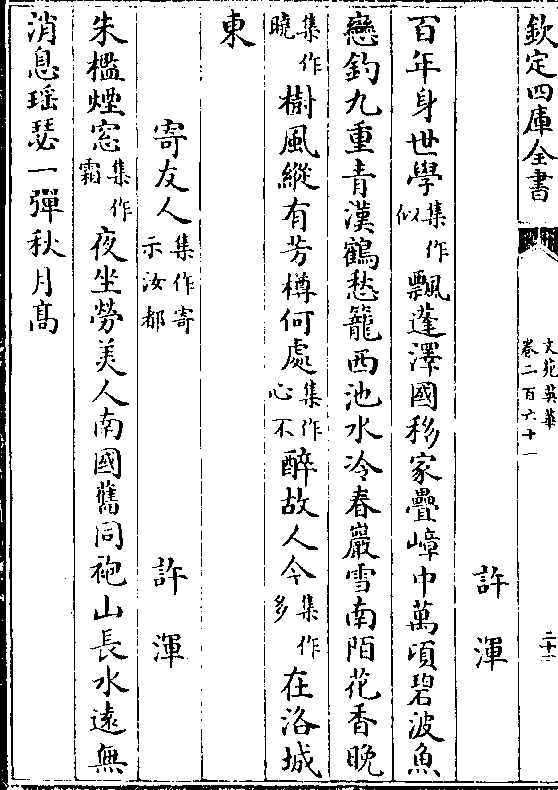 欽定四庫全書
文苑英華
卷二百六十一
二十三
許渾
百年身世學集作似飄蓬澤國移家疊嶂中萬頃碧波魚
戀釣九重青漢鶴愁籠西池水冷春巖雪南陌花香晚
集作曉樹風縱有芳樽何處集作心不醉故人今集作多在洛城
東
寄友人集作寄示汝都 許渾
朱檻煙窓集作霜夜坐勞美人南國舊同袍山長水遠無
消息瑶瑟一彈秋月髙